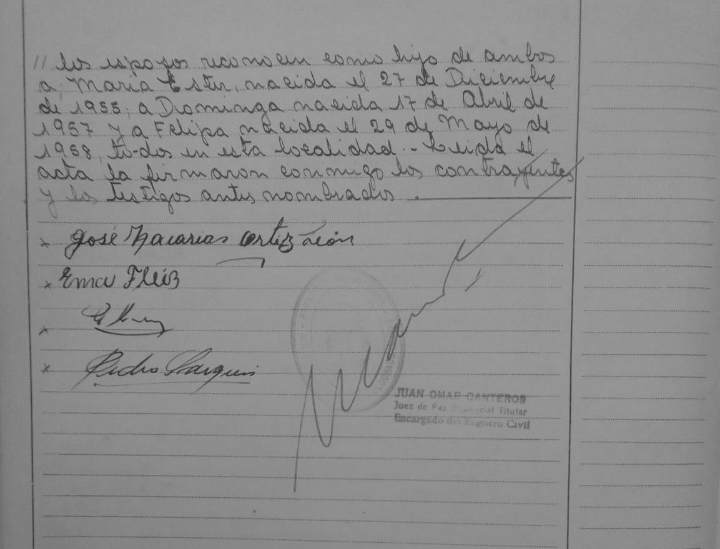 // los esposos reconocen como hijo de ambos
a: Maria Ester, nacida el 27 de Diciembre
de 1955; a Dominga nacida 17 de Abril de
1957 y a Felipa nacida el 29 de Mayo de
1958, todos en esta localidad.- Leida el
acta la firmaron conmigo los contrayentes
y los testigos antes nombrados.
x José Zacarias Ortiz León
x Ema
x
x Pedro
JUAN OMAR CANTEROS
Juez de Paz Provincial Titular
Encargado del Registro Civil